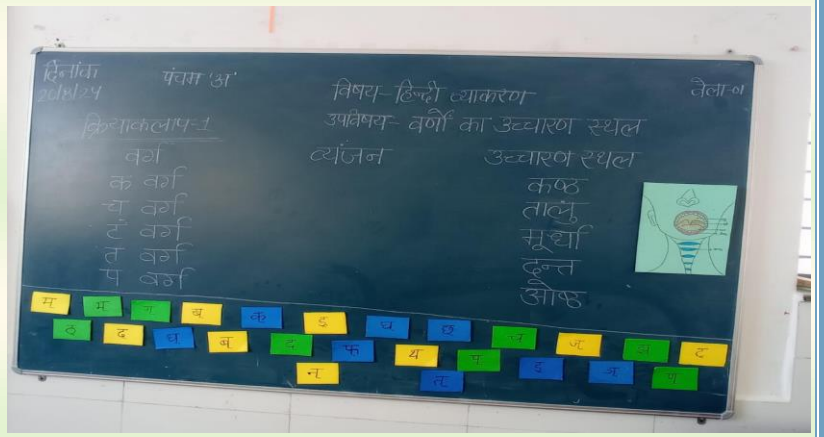 दिनांक पंचम 'अ' विषय- हिन्दी व्याकरण वेला-१
20/8/24 उपविषय- वर्णों का उच्चारण स्थल
क्रियाकलाप-1
वर्ग व्यंजन उच्चारण स्थल
क वर्ग कण्ठ
च वर्ग तालु
ट वर्ग मूर्धा
त वर्ग दन्त
प वर्ग ओष्ठ
म भ ग ख क ङ घ छ च ज झ ट
ठ ढ ध ब द फ थ प ड ञ ण
न त